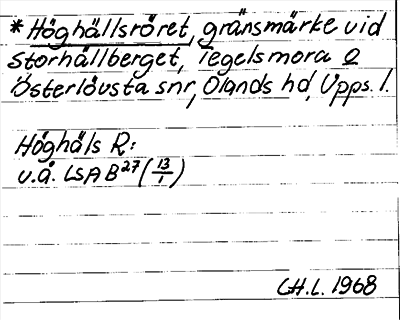 *Höghällsröret, gränsmärke vid
Storhällberget, Tegelsmora o
Österlövsta snr, Olands hd, Upps. l.
Höghäls R:
u.å. LSA B27 (13/1)
C.H.L. 1968